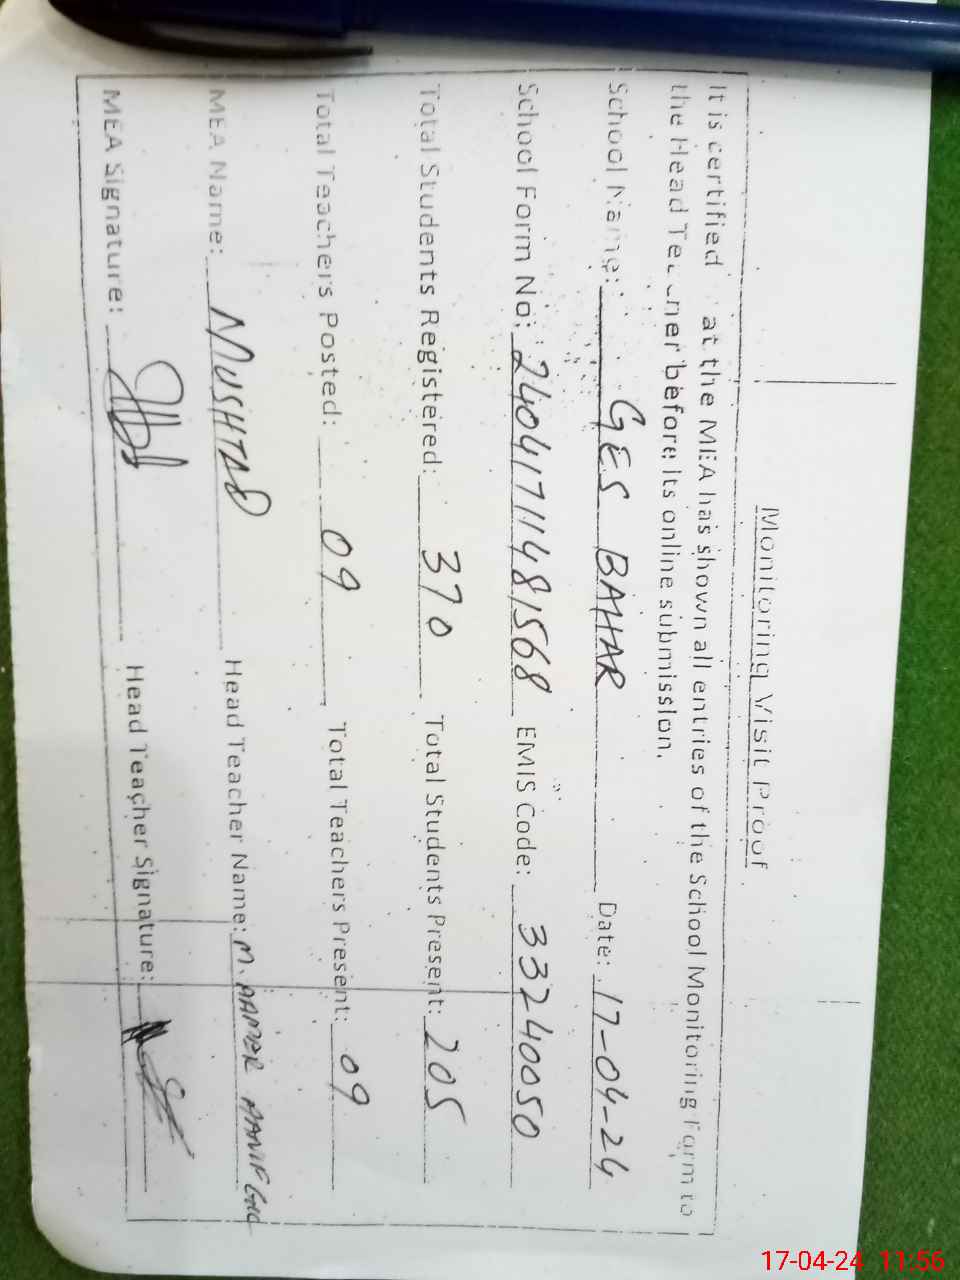 Monitoring Visit Proof
It is certified at the MEA has shown all entries of the School Monitoring Form to
the Head Teacher before its online submission.
School Name: GES BAHAR Date: 17-04-24
School Form No: 24041711481568 EMIS Code: 33240050
Total Students Registered: 370 Total Students Present: 205
Total Teachers Posted: 09 Total Teachers Present: 09
MEA Name: MUSHTAQ Head Teacher Name: M. AAMER HANIF
MEA Signature: Head Teacher Signature:
17-04-24 11:56